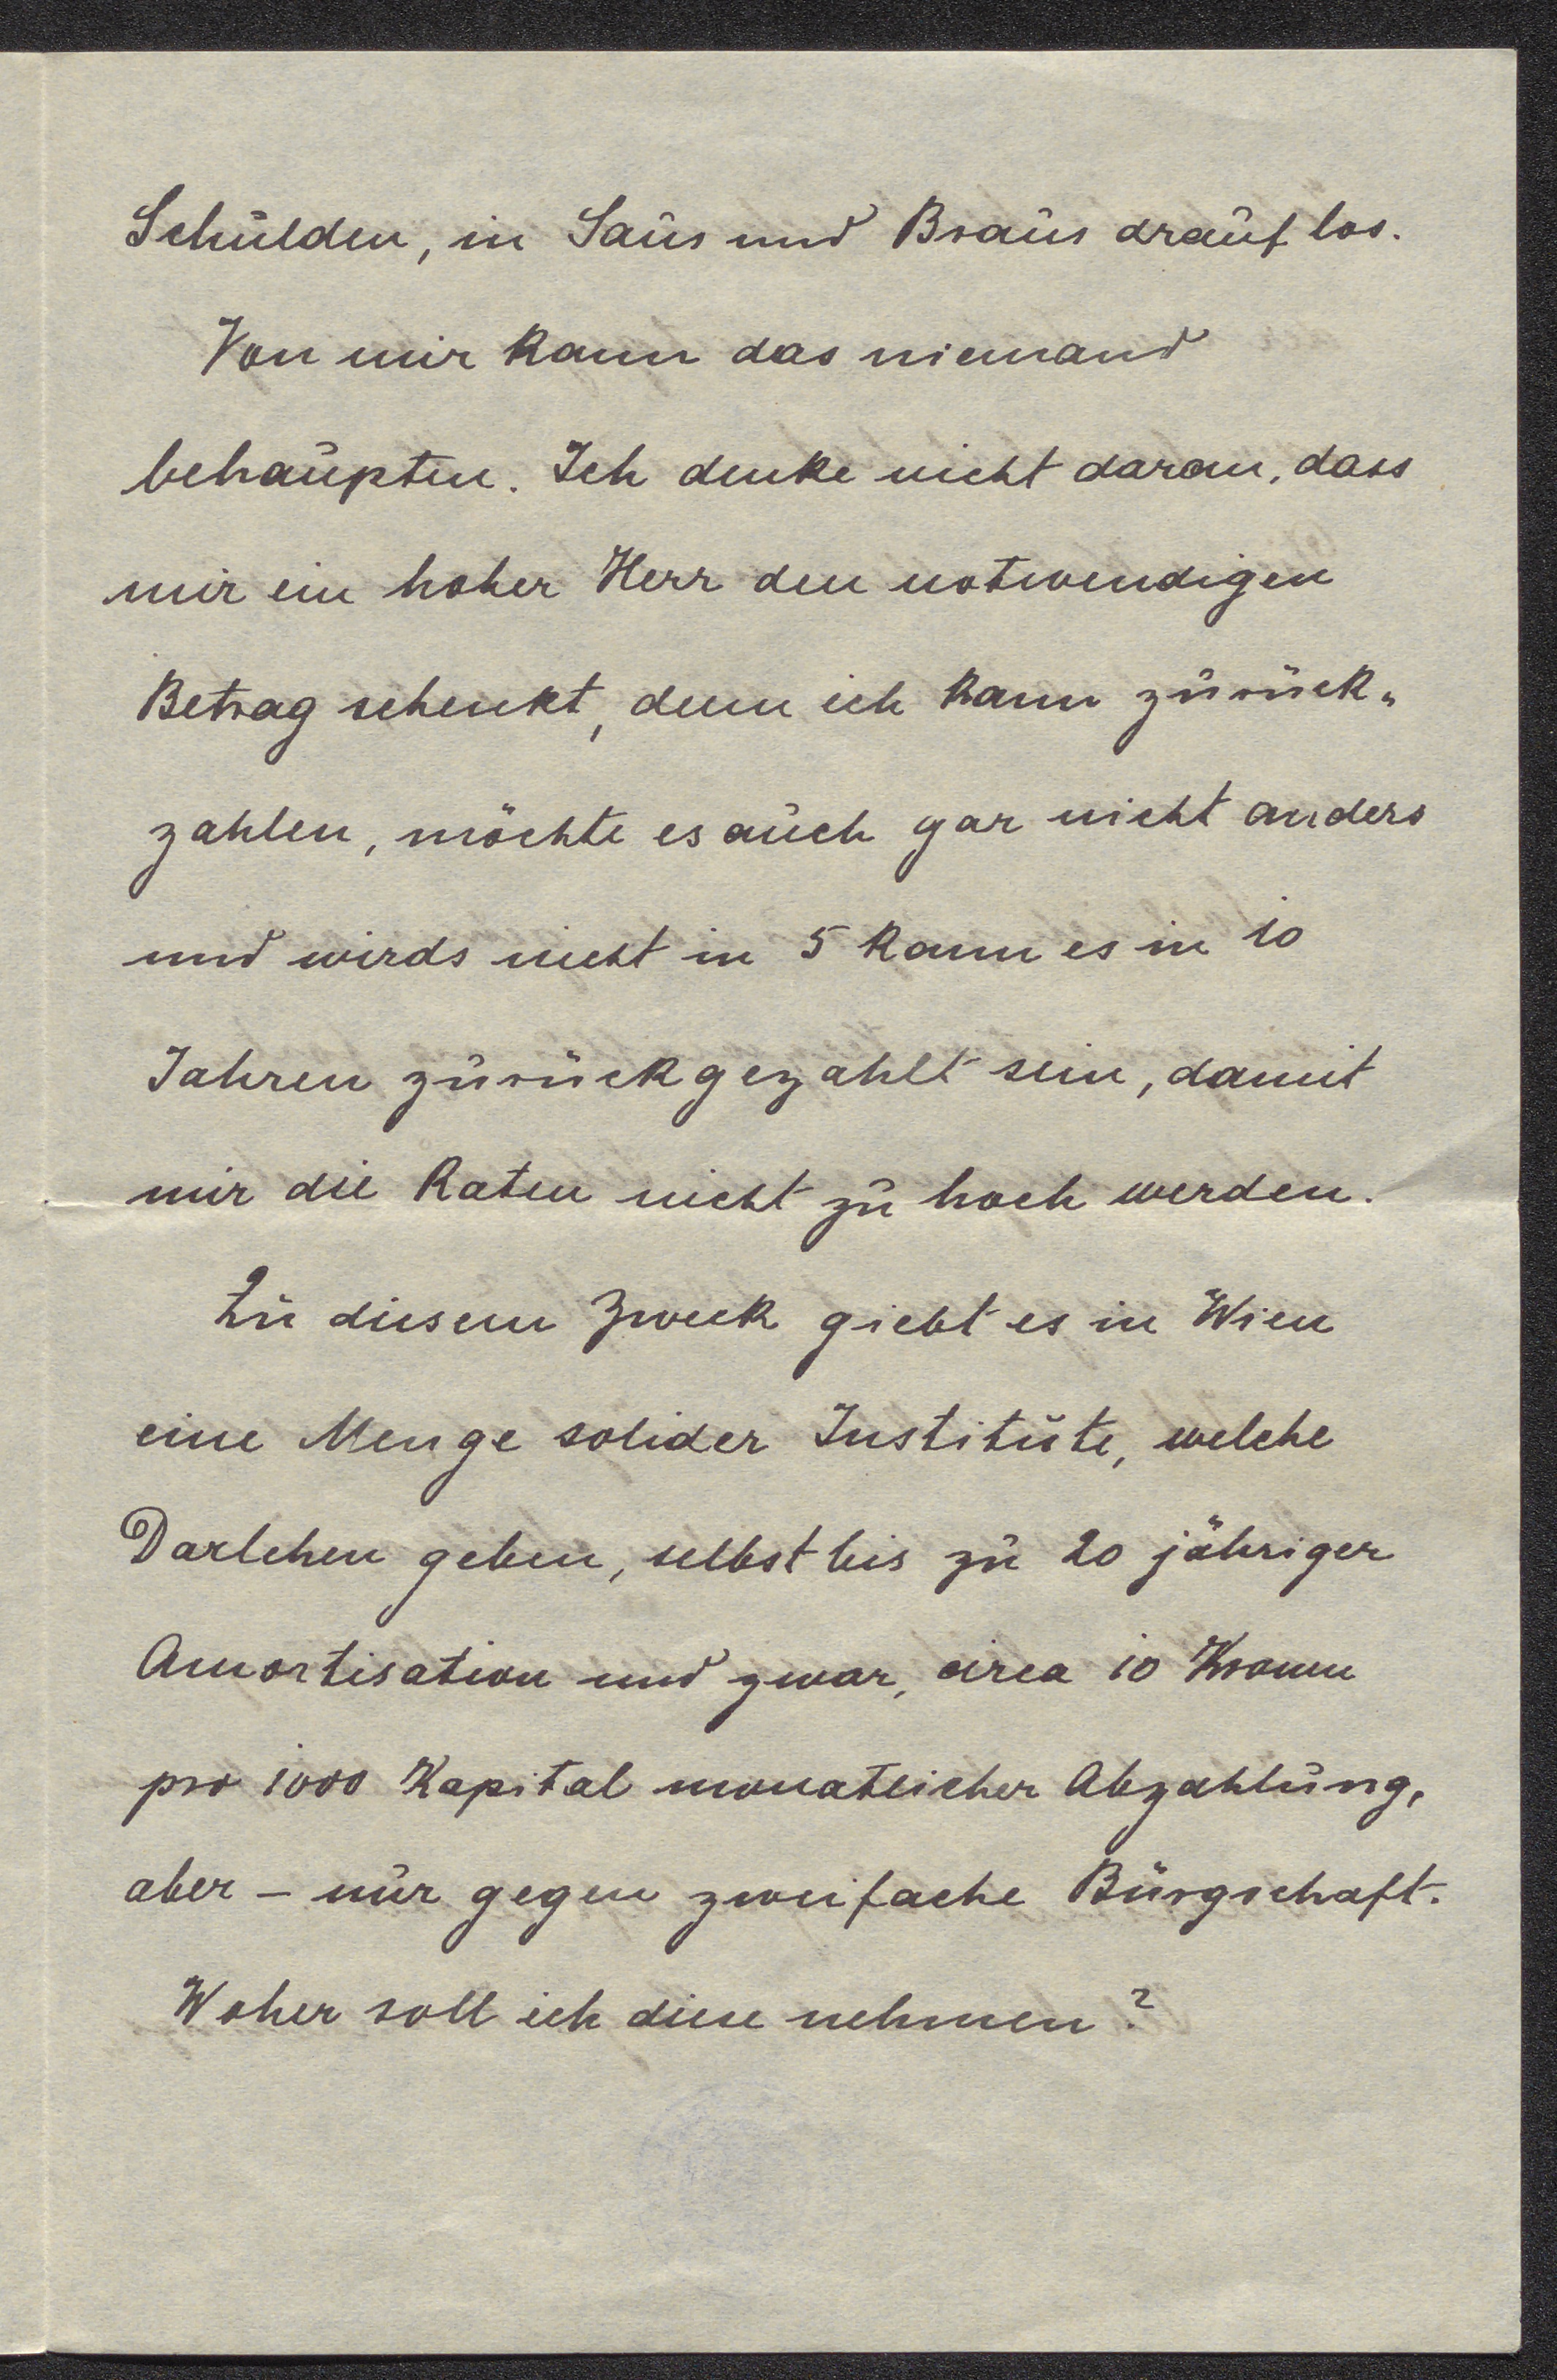 Schulden, in Saus und Braus drauf los.
Von mir kann das niemand
behaupten. Ich denke nicht daran, dass
mir ein hoher Herr den notwendigen
Betrag schenkt, denn ich kann zurück-
zahlen, möchte es auch gar nicht anders
und wirds nicht in 5 kann es in 10
Jahren zurückgezahlt sein, damit
mir die Raten nicht zu hoch werden.
Zu diesem Zweck giebt es in Wien
eine Menge solider Institute, welche
Darlehen geben, selbst bis zu 20 jähriger
Amortisation und zwar, circa 10 Kronen
pro 1000 Kapital monatlicher Abzahlung,
aber – nur gegen zweifache Bürgschaft.
Woher soll ich diese nehmen?